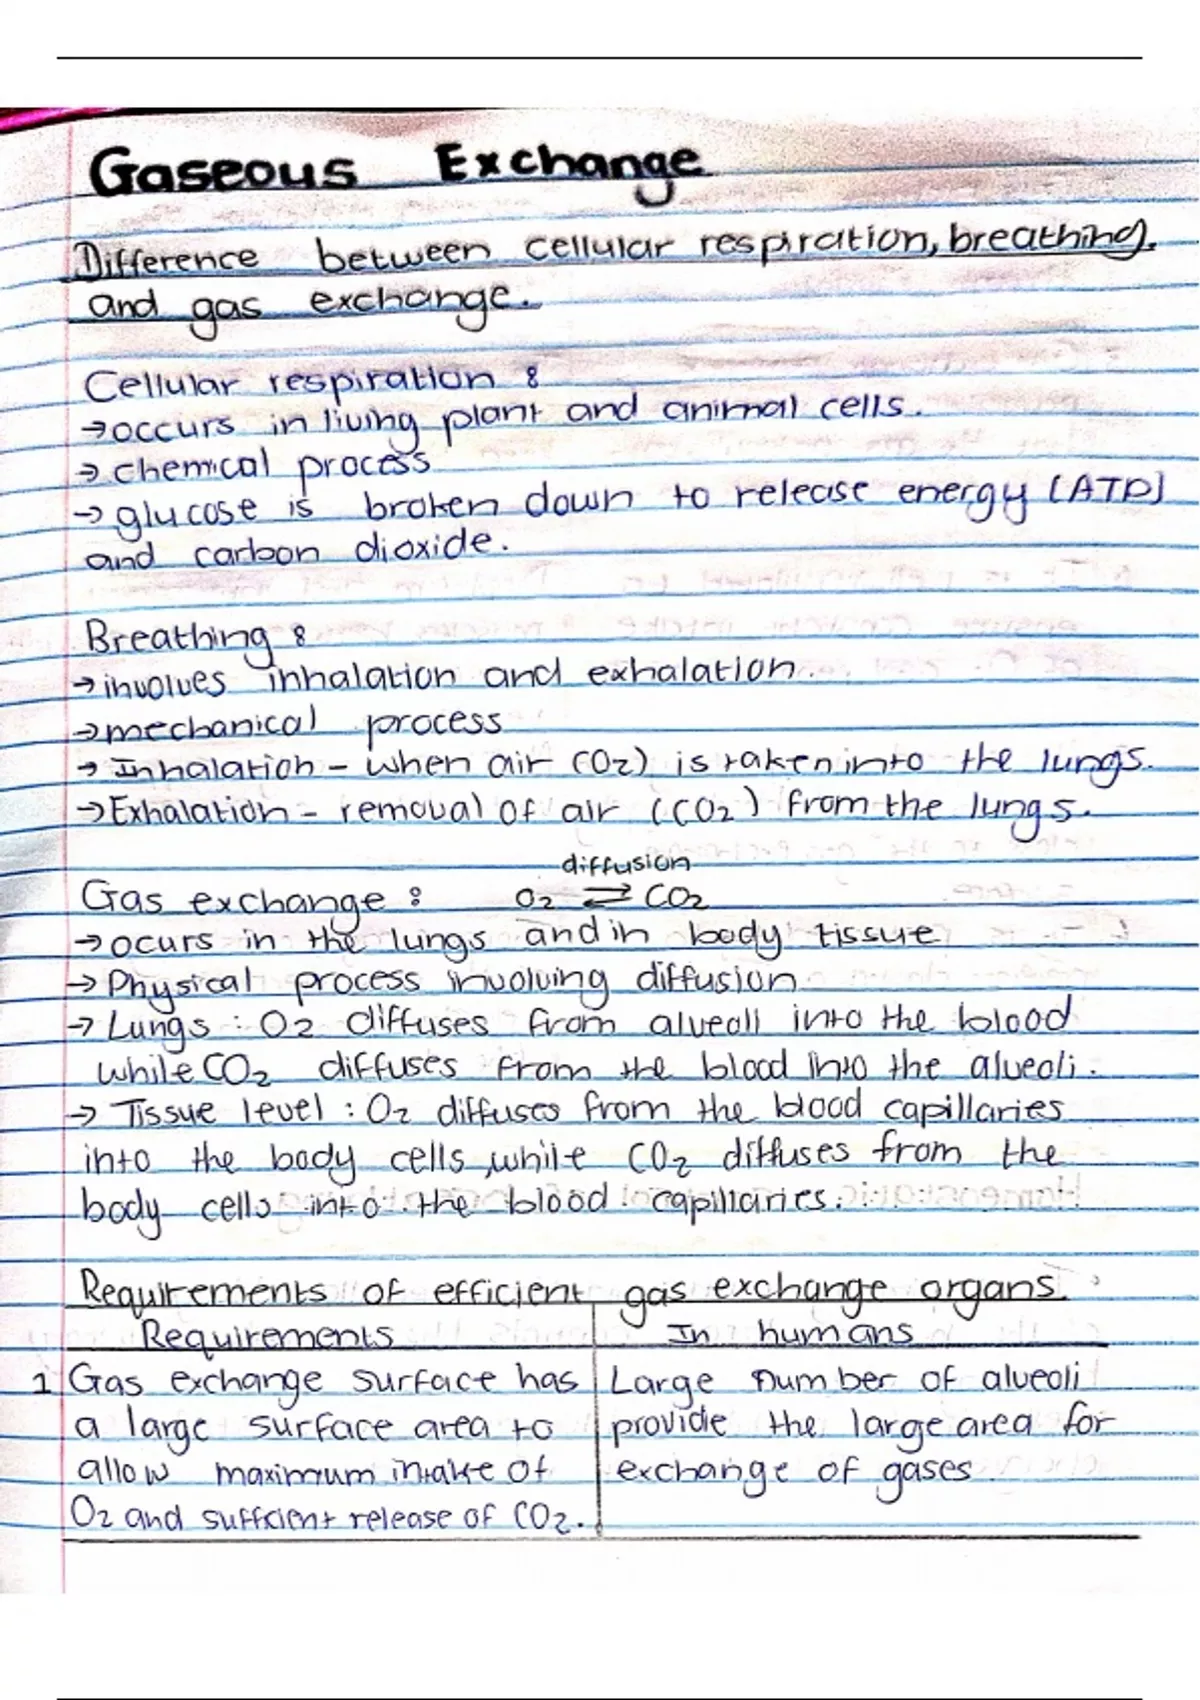 Gaseous Exchange
Difference between cellular respiration, breathing,
and gas exchange.
Cellular respiration :
→occurs in living plant and animal cells.
→ chemical process
→ glucose is broken down to release energy (ATP)
and carbon dioxide.
Breathing :
→ involves inhalation and exhalation.
→mechanical process
→ Inhalation – when air (O2) is taken into the lungs.
→Exhalation – removal of air (CO2) from the lungs.
diffusion
Gas exchange : O2 ⇌ CO2
→ ocurs in the lungs and in body tissue
→ Physical process involving diffusion
→ Lungs : O2 diffuses from alveoli into the blood
while CO2 diffuses from the blood into the alveoli.
→ Tissue level : O2 diffuses from the blood capillaries
into the body cells, while CO2 diffuses from the
body cells into the blood capillaries.
Requirements of efficient gas exchange organs.
Requirements In humans
1 Gas exchange surface has Large number of alveoli
a large surface area to provide the large area for
allow maximum intake of exchange of gases
O2 and sufficient release of CO2.